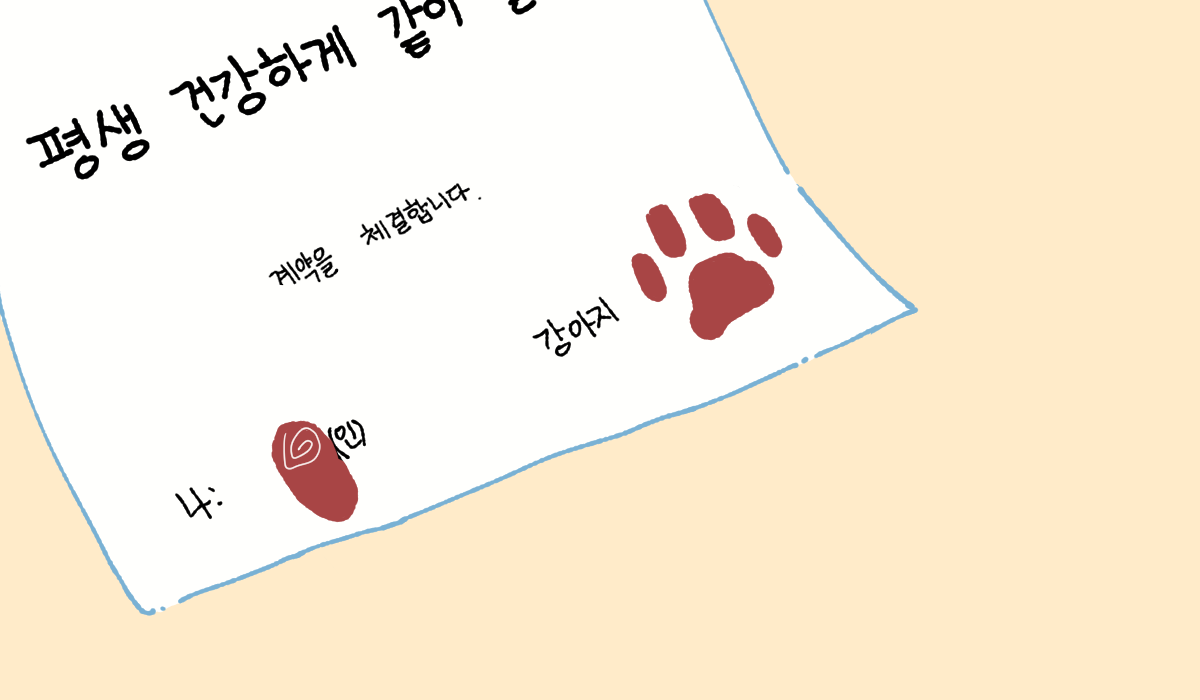 평생 건강하게 같이
계약을 체결합니다.
강아지
나: (인)